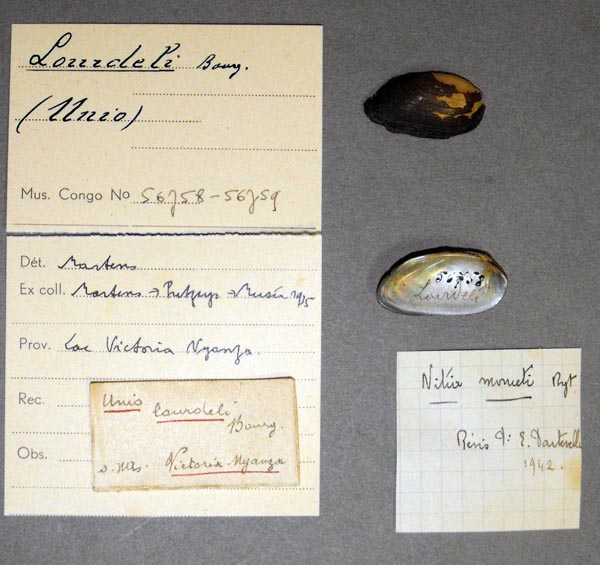 Lourdeli Bourg.
(Unio)
Mus. Congo No 56758-56759
Dét. Martens
Ex coll. Martens → Putzeys → Musée 1935
Prov. Lac Victoria Nyanza.
Rec.
Obs.
Unio
lourdeli
Bourg.
Victoria-Nyanza
56758
Lourdeli
Nitia monceti
Révis Dr E. Dartevelle
1942.